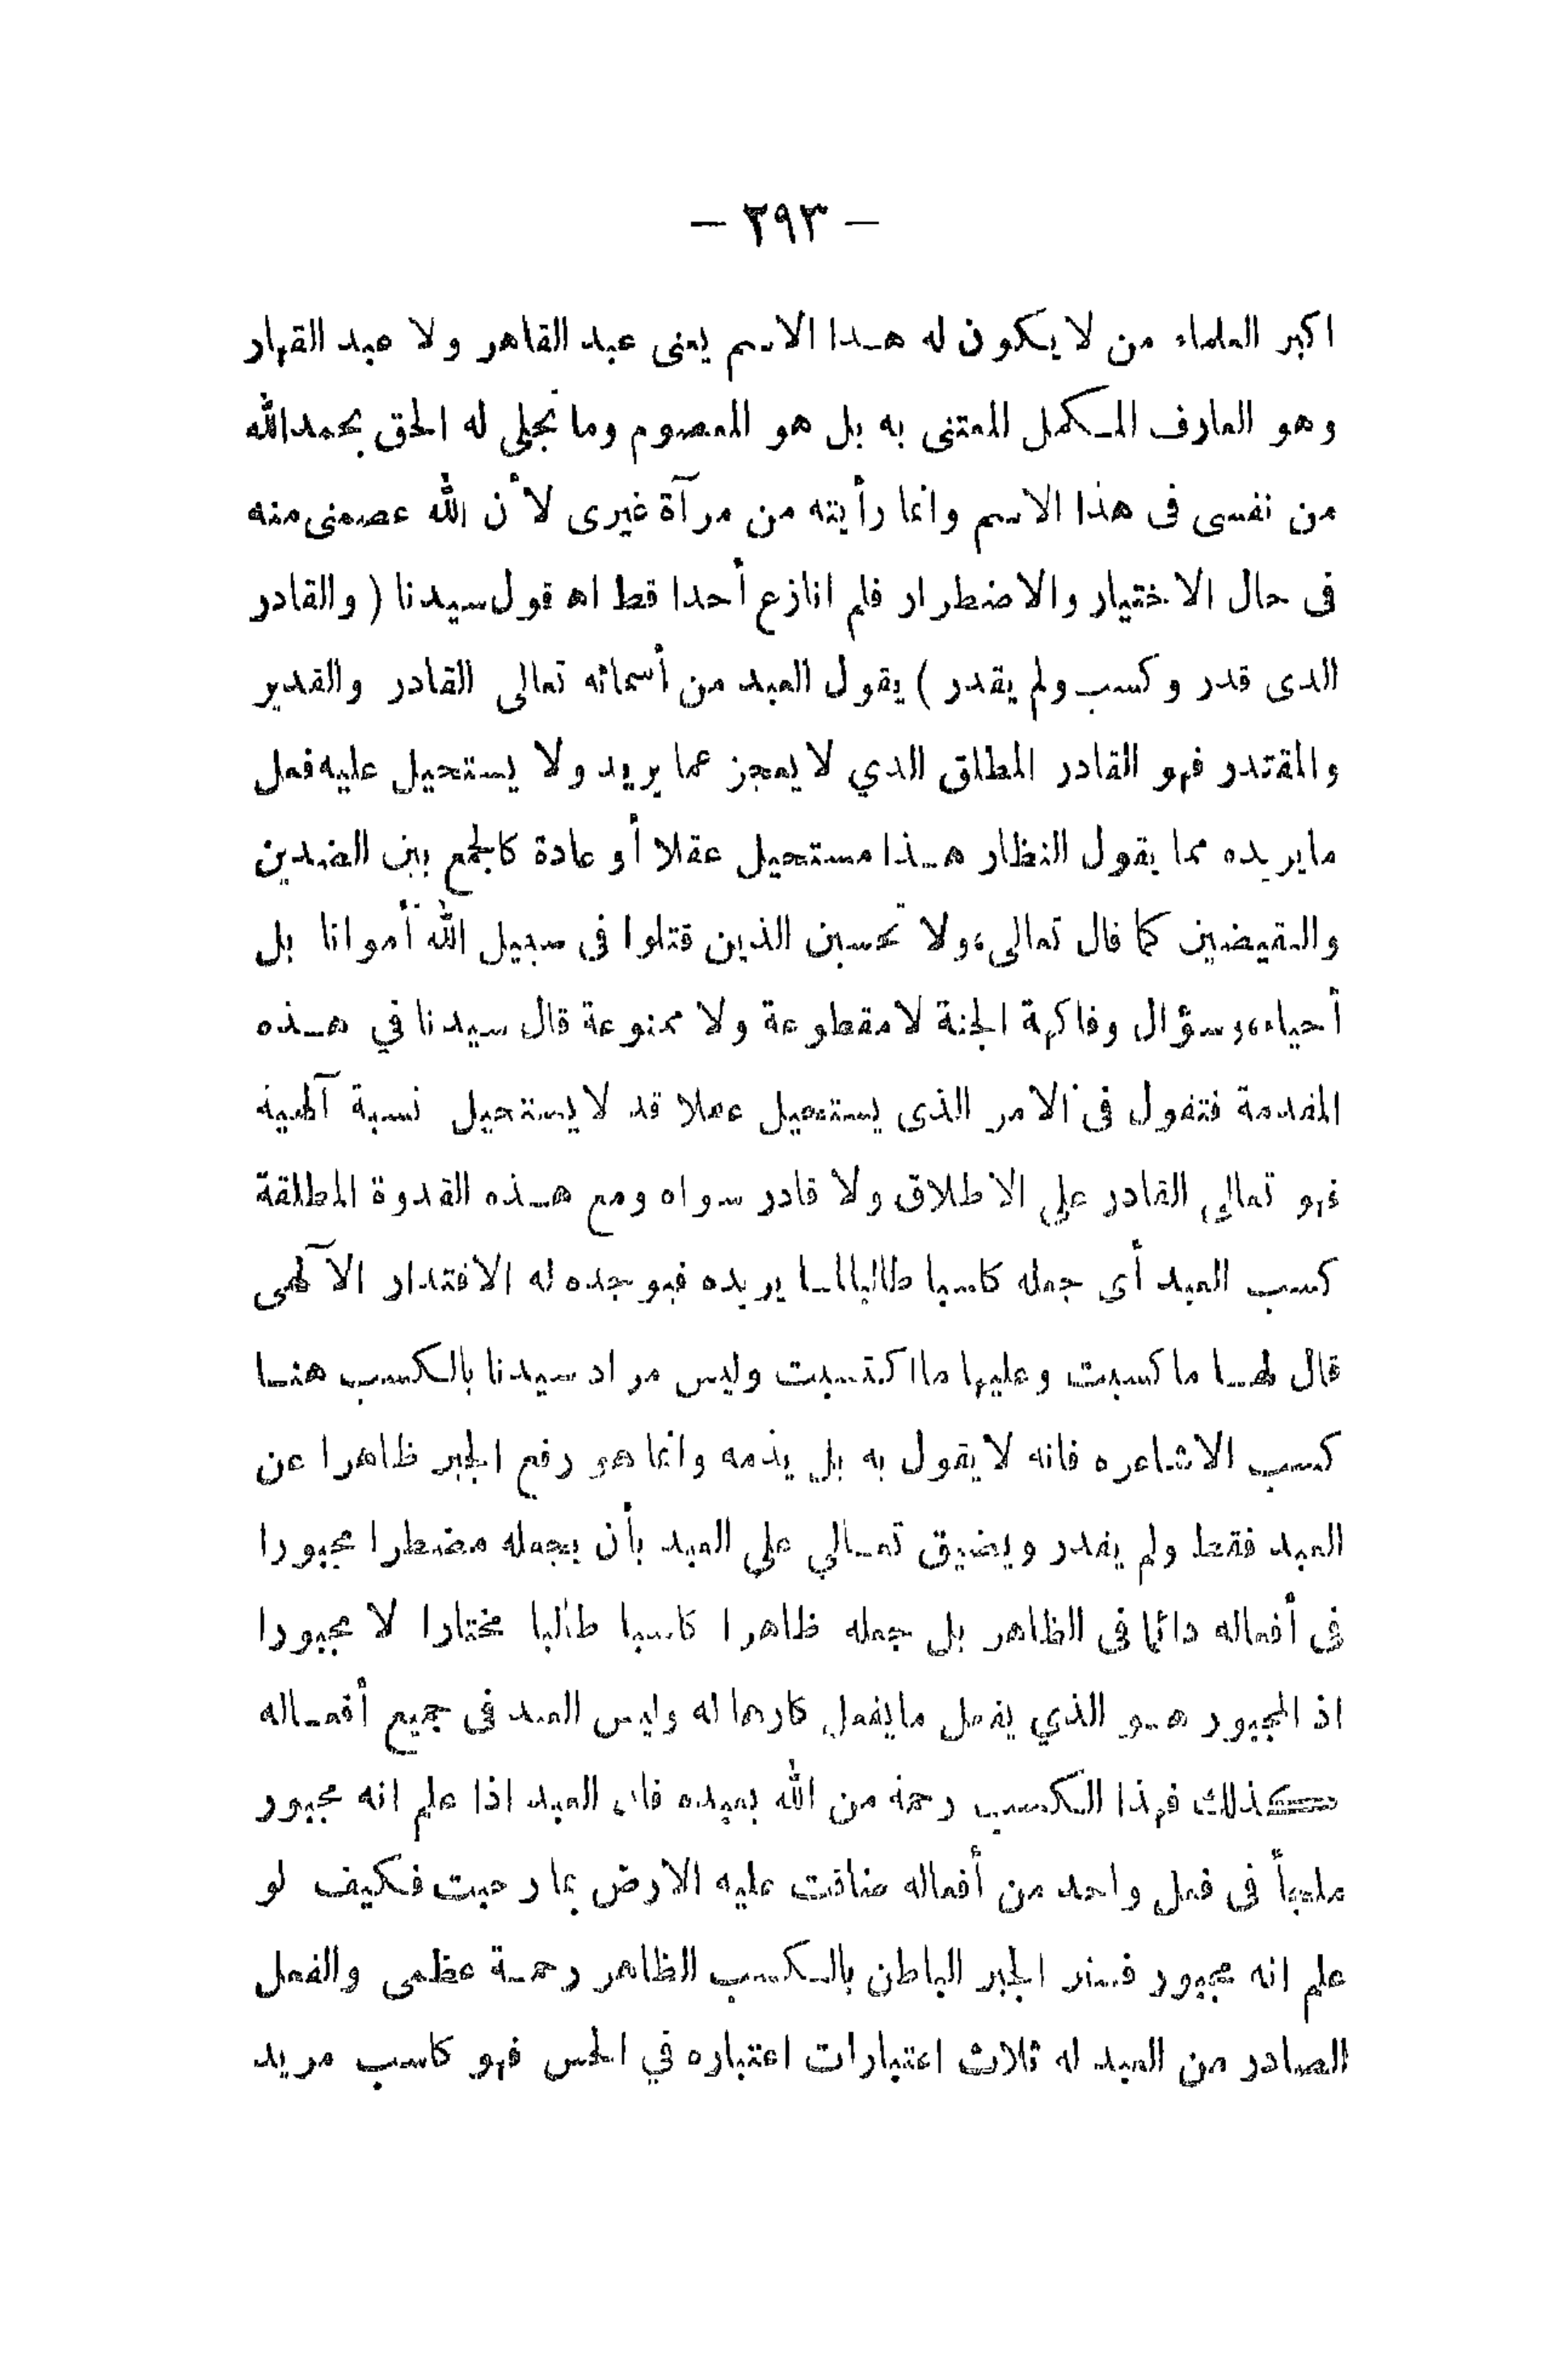 — ٢٩٣ —
اكبر العلماء من لا يكون له هـذا الاسم يعنى عبد القاهر ولا عبد القهار
وهو العارف المـكمل المعتنى به بل هو المعصوم وما تجلى له الحق بحمدالله
من نفسى فى هذا الاسم وانما رأيته من مرآة غيرى لأن الله عصمنى منه
فى حال الاختيار والاضطرار فلم انازع أحدا قط اه قول سيدنا ( والقادر
الذى قدر وكسب ولم يقدر ) يقول العبد من أسمائه تعالى القادر والقدير
والمقتدر فهو القادر المطلق الذي لا يعجز عما يريد ولا يستحيل عليه فعل
ما يريده مما يقول النظار هـذا مستحيل عقلا أو عادة كالجمع بين الضدين
والنقيضين كما قال تعالى، ولا تحسبن الذين قتلوا فى سبيل الله أمواتا بل
أحياء، وسؤال وفاكهة الجنة لا مقطوعة ولا ممنوعة قال سيدنا في هـذه
المقدمة فتقول فى الامر الذى يستحيل عقلا قد لا يستحيل نسبة آلهية
فهو تعالى القادر على الاطلاق ولا قادر سواه ومع هـذه القدرة المطلقة
كسب العبد أى جعله كاسبا طالبا لمـا يريده فيوجده له الاقتدار الآلهى
قال لهـا ما كسبت وعليها ما اكتسبت وليس مراد سيدنا بالـكسب هنـا
كسب الاشاعره فانه لا يقول به بل يذمه وانما هو رفع الجبر ظاهرا عن
العبد فقط ولم يقدر ويضيق تعـالي على العبد بأن يجعله مضطرا مجبورا
فى أفعاله دائما فى الظاهر بل جعله ظاهرا كاسبا طالبا مختارا لا مجبورا
اذ المجبور هـو الذي يفعل ما يفعل كارها له وليس العبد فى جميع أفعـاله
كذلك فهذا الـكسب رحمة من الله بعبيده فان العبد اذا علم انه مجبور
ملجأ فى فعل واحد من أفعاله ضاقت عليه الارض بما رحبت فـكيف لو
علم انه مجبور فستر الجبر الباطن بالـكسب الظاهر رحمـة عظمى والفعل
الصادر من العبد له ثلاث اعتبارات اعتباره في الحس فهو كاسب مريد